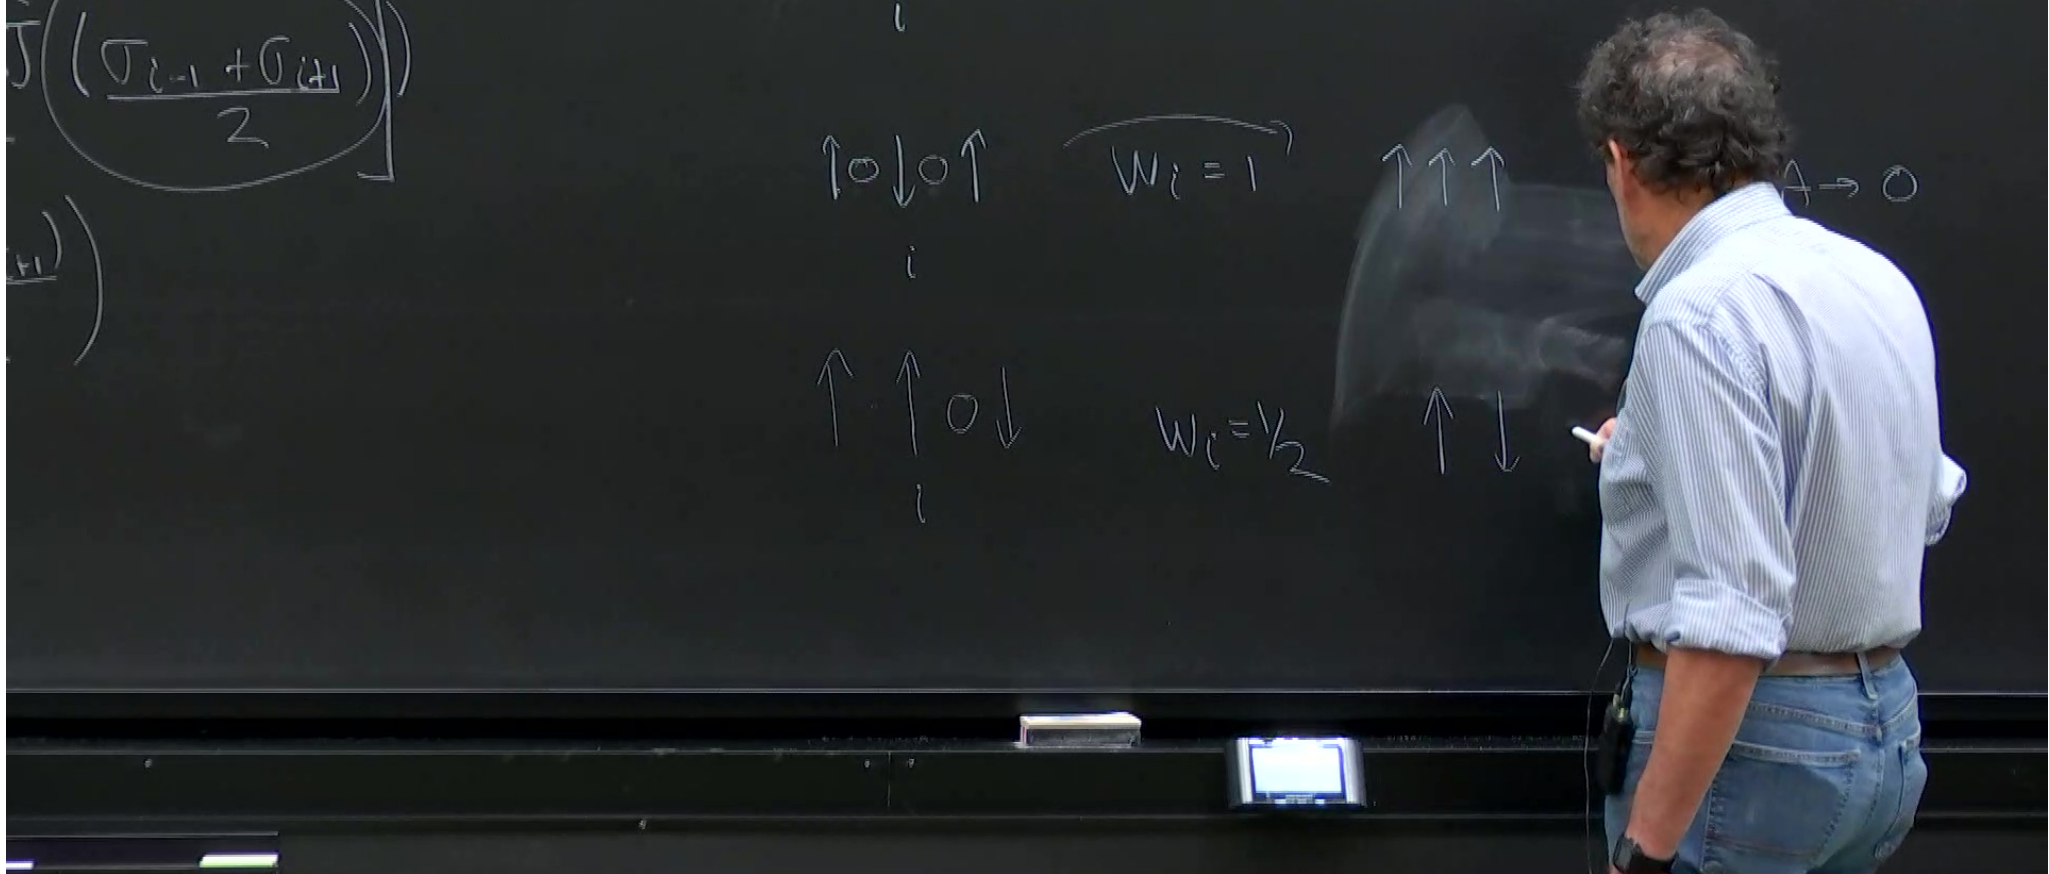 J((σ_{i-1} + σ_{i+1})/2)])
i
↑o↓o↑ W_i = 1 ↑↑↑ A → 0
i
i+1)
↑ ↑ o ↓ W_i = 1/2 ↑ ↓
i